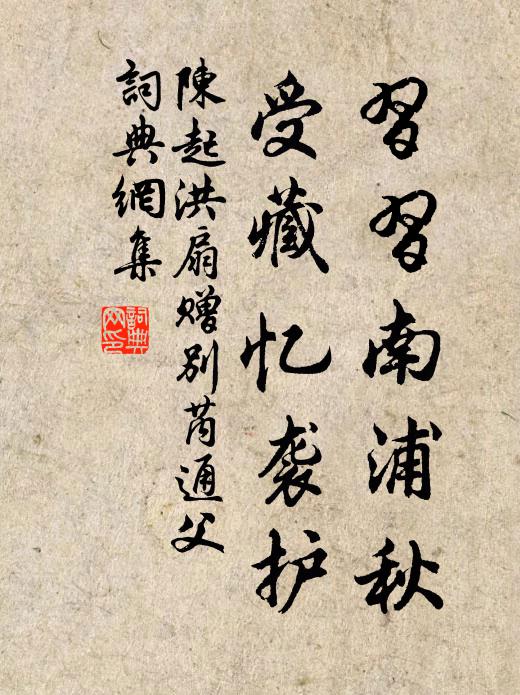 習習南浦秋
受藏忆袭护
陳起洪扇赠别芮通父
詞典網集
詞典
网印